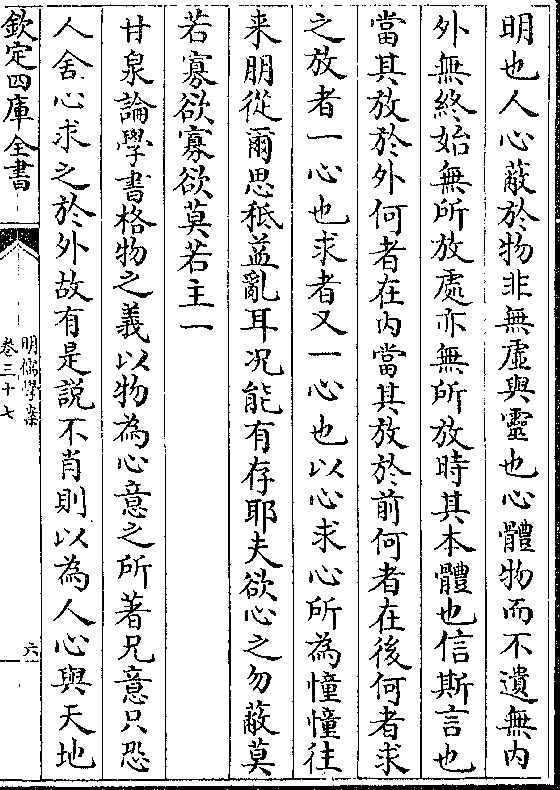 明也人心蔽於物非無虛與靈也心體物而不遺無内
外無終始無所放處亦無所放時其本體也信斯言也
當其放於外何者在内當其放於前何者在後何者求
之放者一心也求者又一心也以心求心所為憧憧往
来朋從爾思秪益亂耳况能有存耶夫欲心之勿蔽莫
若寡欲寡欲莫若主一
甘泉論學書格物之義以物為心意之所著兄意只恐
人舍心求之於外故有是説不肖則以為人心與天地
欽定四庫全書
明儒學案
卷三十七
六